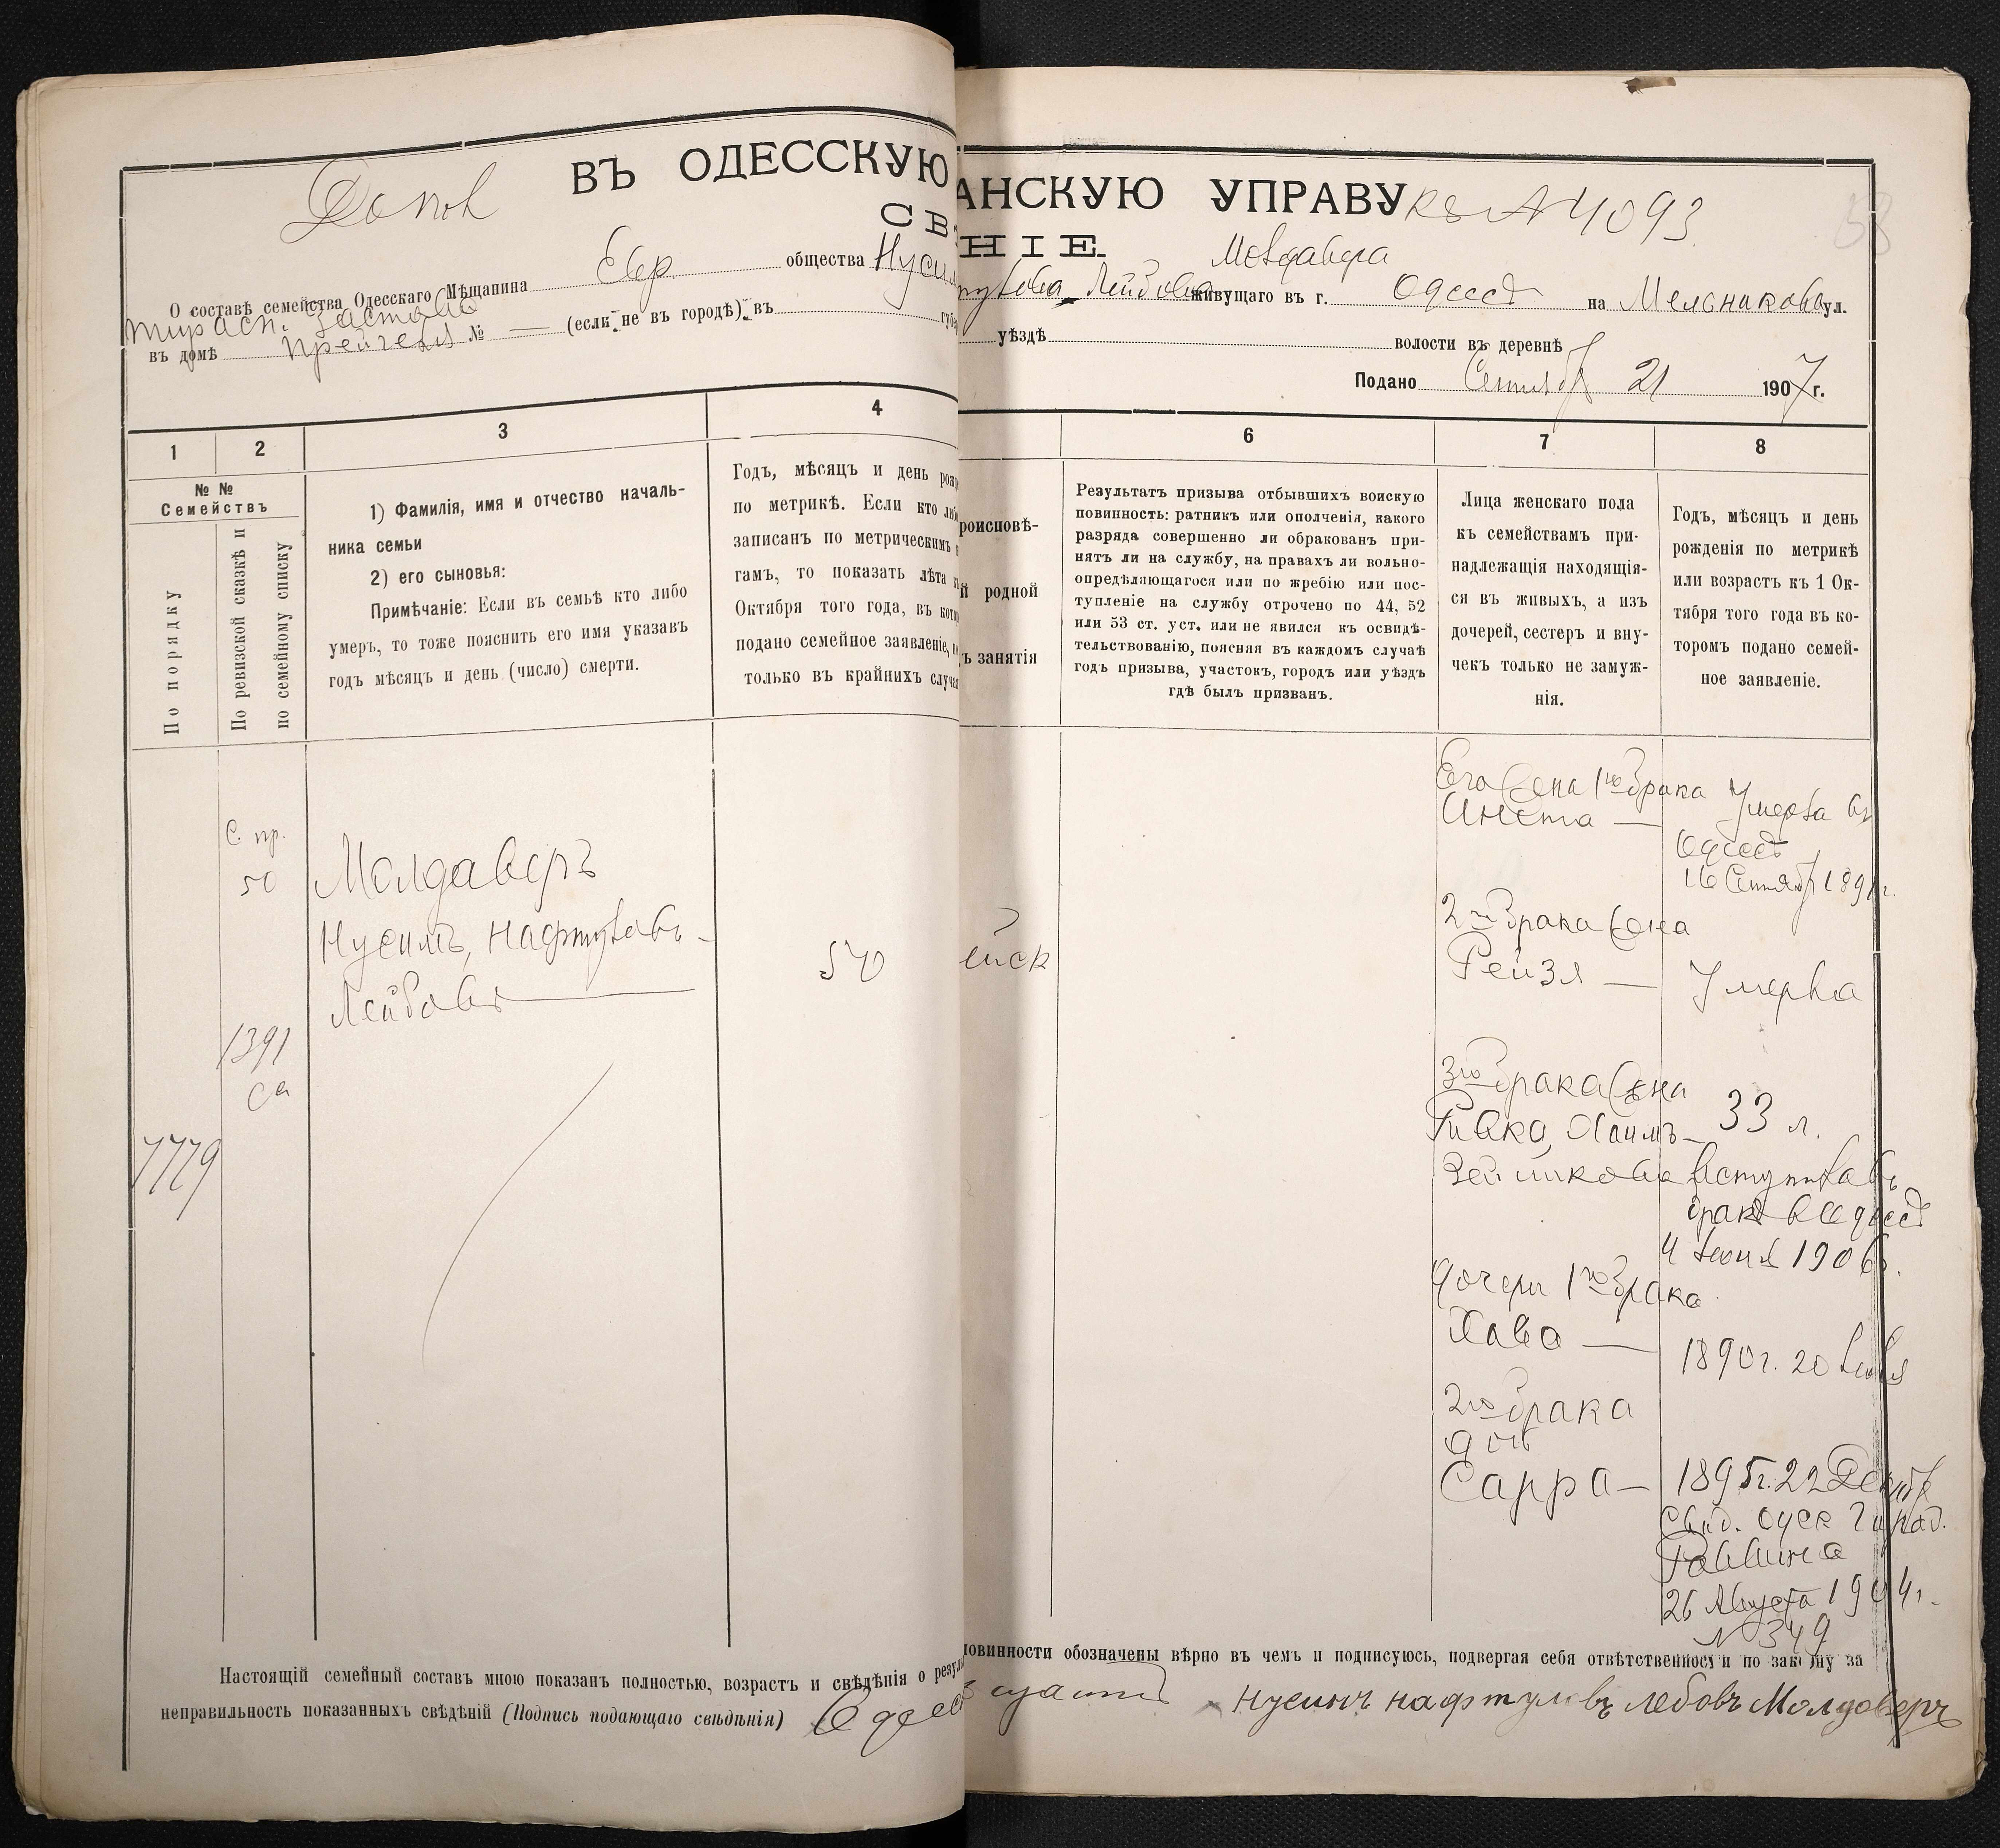 Допол
ВЪ ОДЕССКУЮ
АНСКУЮ УПРАВУ
къ № 4093
58
СВ
НІЕ.
О составѣ семейства Одесскаго Мѣщанина Евр. общества Нусим
Молдавера
Лейбова живущаго въ г. Одессѣ на Мельниковой ул.
Тирасп. Застава
въ домѣ № — (если не въ городѣ) въ губе
уѣздѣ волости въ деревнѣ
Подано Сентября 21 1907 г.
1
2
3
4
6
7
8
№ №
Семействъ
По порядку
По ревизской сказкѣ и
по семейному списку
1) Фамилія, имя и отчество началь-
ника семьи
2) его сыновья:
Примѣчаніе: Если въ семьѣ кто либо
умеръ, то тоже пояснить его имя указавъ
годъ мѣсяцъ и день (число) смерти.
Годъ, мѣсяцъ и день рож
по метрикѣ. Если кто либ
записанъ по метрическимъ
гамъ, то показать лѣта
Октября того года, въ кото
подано семейное заявленіе,
только въ крайнихъ случа
роисповѣ-
й родной
ъ занятія
Результатъ призыва отбывшихъ воискую
повинность: ратникъ или ополченія, какого
разряда совершенно ли обракованъ при-
нятъ ли на службу, на правахъ ли вольно-
опредѣляющагося или по жребію или пос-
тупленіе на службу отрочено по 44, 52
или 53 ст. уст. или не явился къ освидѣ-
тельствованію, поясняя въ каждомъ случаѣ
годъ призыва, участокъ, городъ или уѣздъ
гдѣ былъ призванъ.
Лица женскаго пола
къ семействамъ при-
надлежащія находящія-
ся въ живыхъ, а изъ
дочерей, сестеръ и вну-
чекъ только не замуж-
нія.
Годъ, мѣсяцъ и день
рожденія по метрикѣ
или возрастъ къ 1 Ок-
тября того года въ ко-
торомъ подано семей-
ное заявленіе.
С. пр.
50
Молдаверъ
Нусимъ, Нафтулавъ-
Лейбовъ
50
ейск
1391
са
7729
Его жена 1го брака
Инета —
Умерла въ
Одессѣ
16 Сентября 189
2го брака жена
Рейзя —
Умерла
3го брака жена
Ривка, Хаимъ-
Зейликова
33 л.
вступилъ въ
бракъ въ Одессѣ
4 Іюня 1906г.
дочери 1го брака
Хава —
1890г. 20
2го брака
дочь
Сарра —
1895г. 22 Декабря
Свид. Одеск. Город.
Раввина
26 Августа 1904г.
№ 349
Настоящій семейный составъ мною показанъ полностью, возрастъ и свѣдѣнія о резуль
повинности обозначены вѣрно въ чемъ и подписуюсь, подвергая себя отвѣтственности по закону за
неправильность показанныхъ свѣдѣній (Подпись подающаго свѣдѣнія)
Нусинъ нафтуловъ лебовъ Молдоверъ